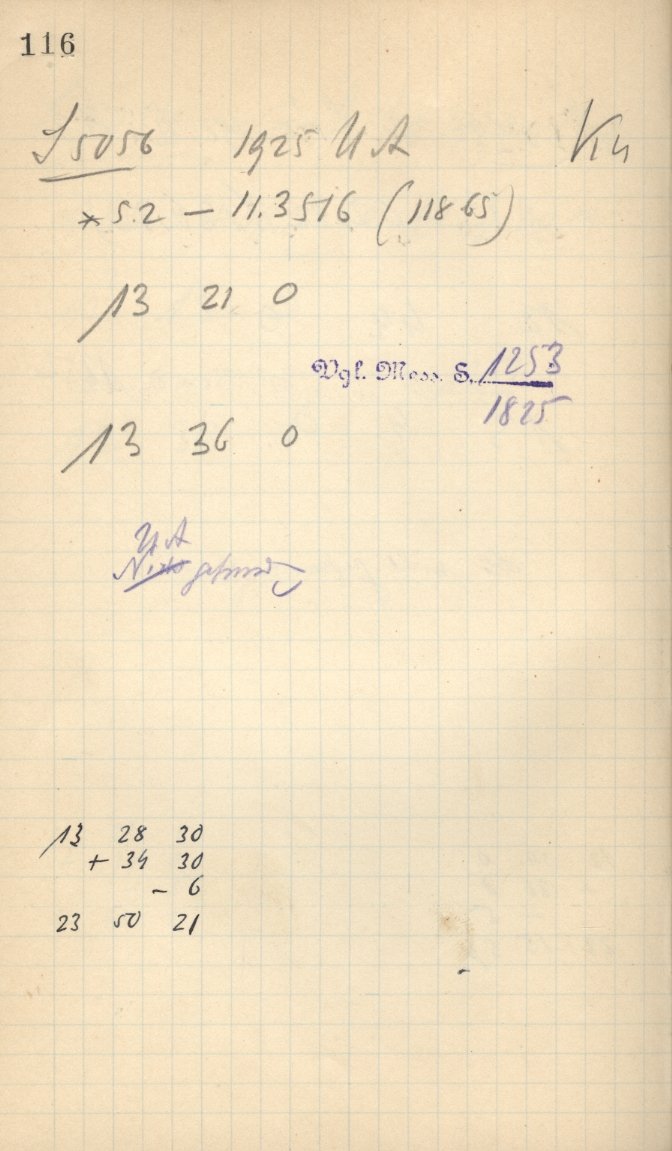 116
J 5056 1925 UA Kn
* 5.2 – 11.3516 (11865)
13 21 0
Vgl. Mess. S. 1253
1825
13 36 0
UA
gefunden
13 28 30
+ 34 30
– 6
23 50 21